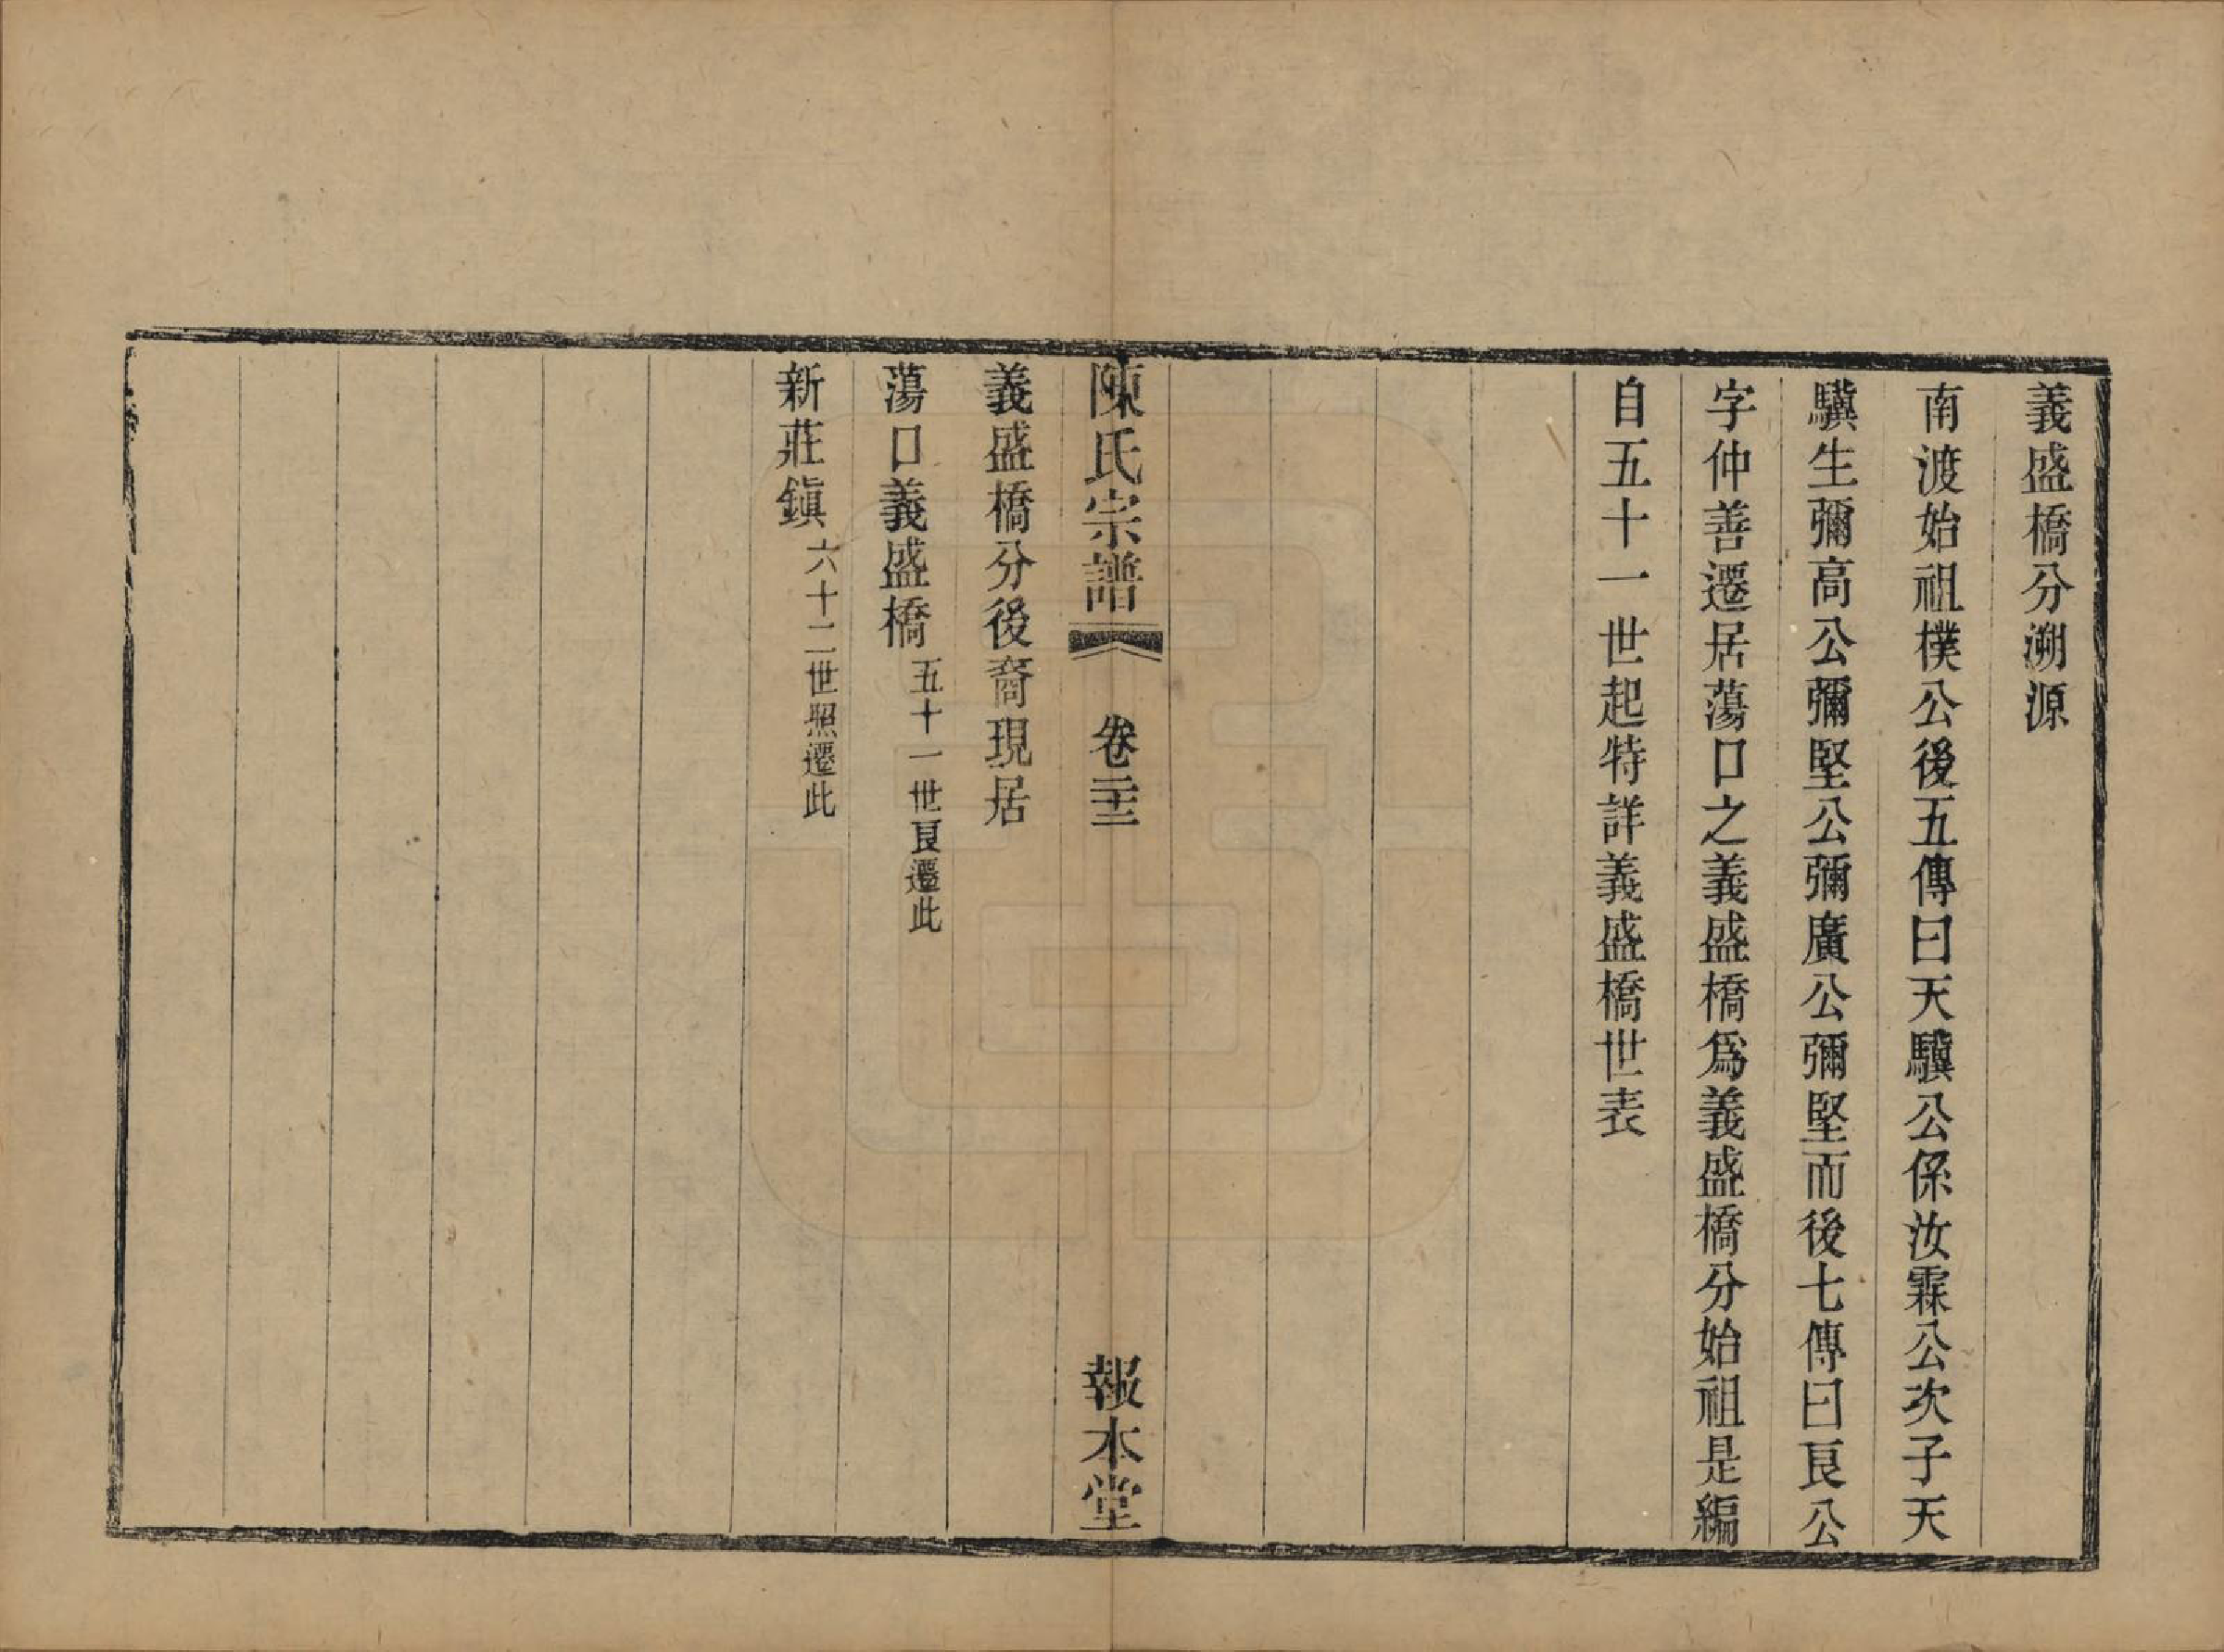 義盛橋分溯源
南渡始祖樸公後五傳曰天驥公係汝霖公次子天
驥生彌高公彌堅公彌廣公彌堅而後七傳曰良公
字仲善遷居蕩口之義盛橋爲義盛橋分始祖是編
自五十一世起特詳義盛橋世表
陳氏宗譜
卷二十三
報本堂
義盛橋分後裔現居
蕩口義盛橋 五十一世良遷此
新莊鎭 六十二世照遷此